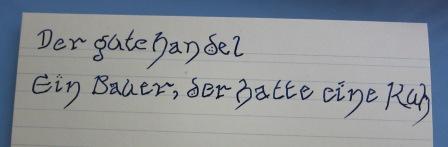 Der gute Handel
Ein Bauer, der hatte eine Kuh